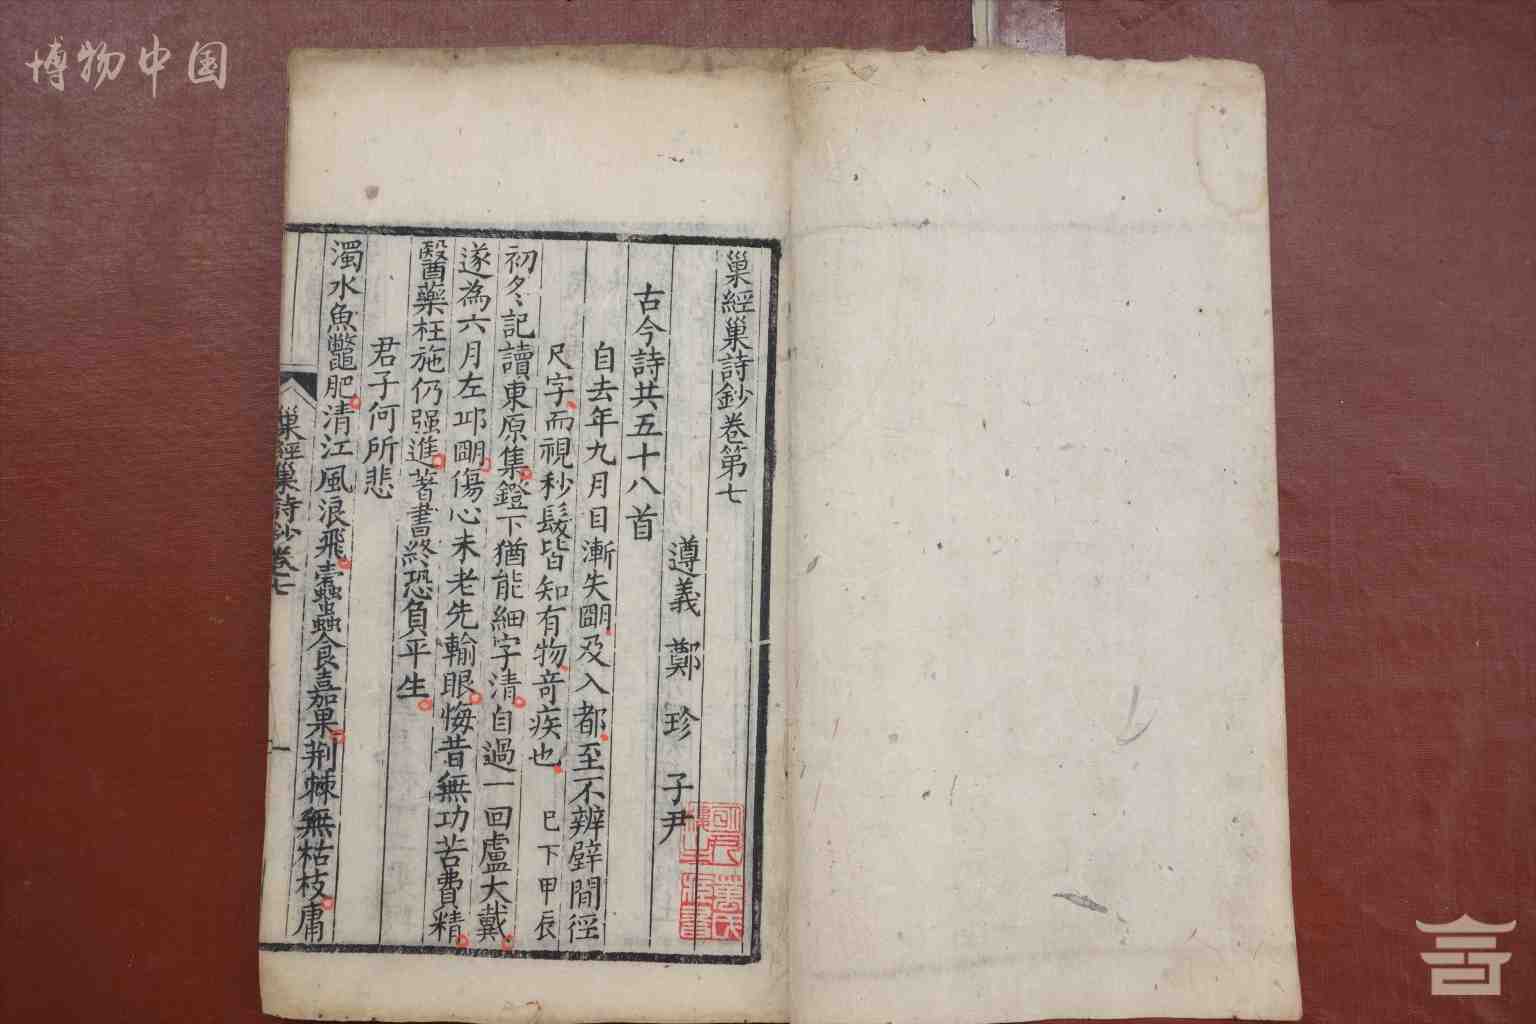 博物中国
巢經巢詩鈔卷第七
遵義 鄭 珍 子尹
古今詩共五十八首
自去年九月目漸失朙及入都至不辨壁間徑
尺字而視秒髮皆知有物奇疾也 已下甲辰
初冬記讀東原集鐙下猶能細字清自過一回盧大戴
遂為六月左邱朙傷心未老先輸眼悔昔無功苦費精
醫藥枉施仍强進著書終恐負平生
君子何所悲
濁水魚鼈肥清江風浪飛蠹蟲食嘉果荆棘無枯枝庸
巢經巢詩鈔卷七
一